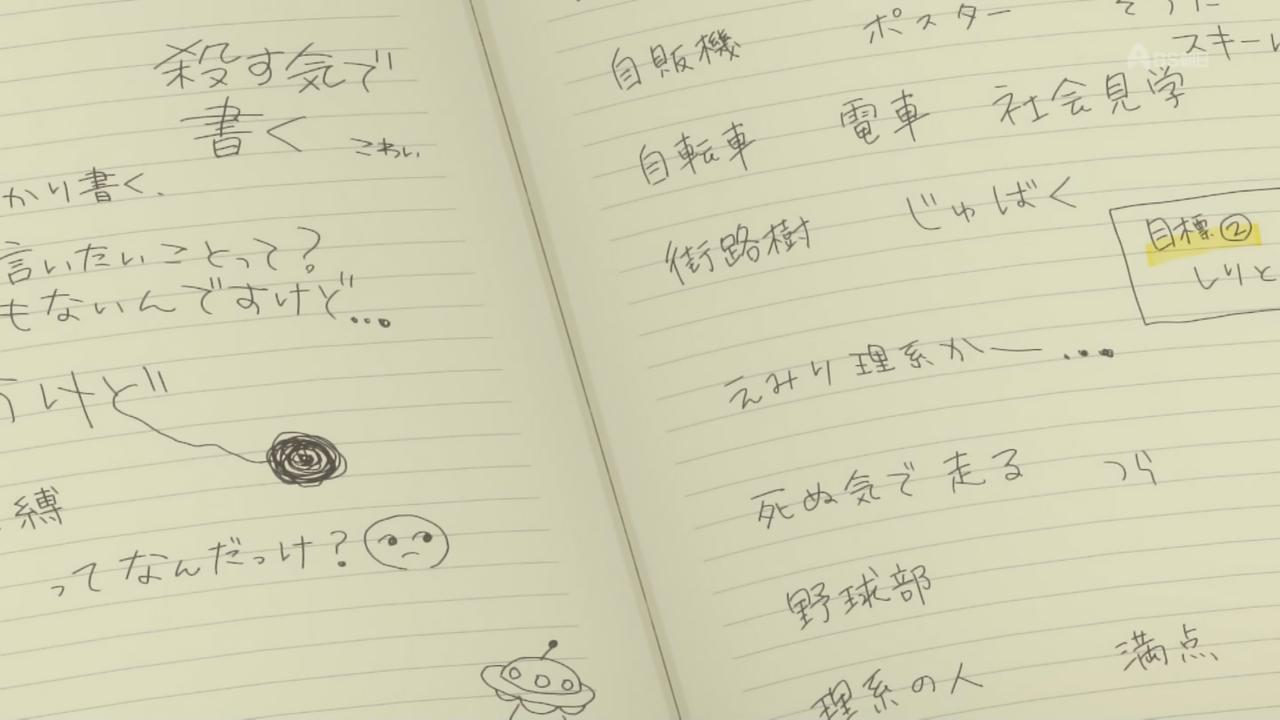 殺す気で
書く こわい
かり書く、
言いたいことって?
もないんですけど…
けど
縛
ってなんだっけ?
自販機 ポスター
スキー
自転車 電車 社会見学
街路樹 じゅばく
目標②
しりと
えみり理系かー…
死ぬ気で走る つら
野球部
理系の人 満点